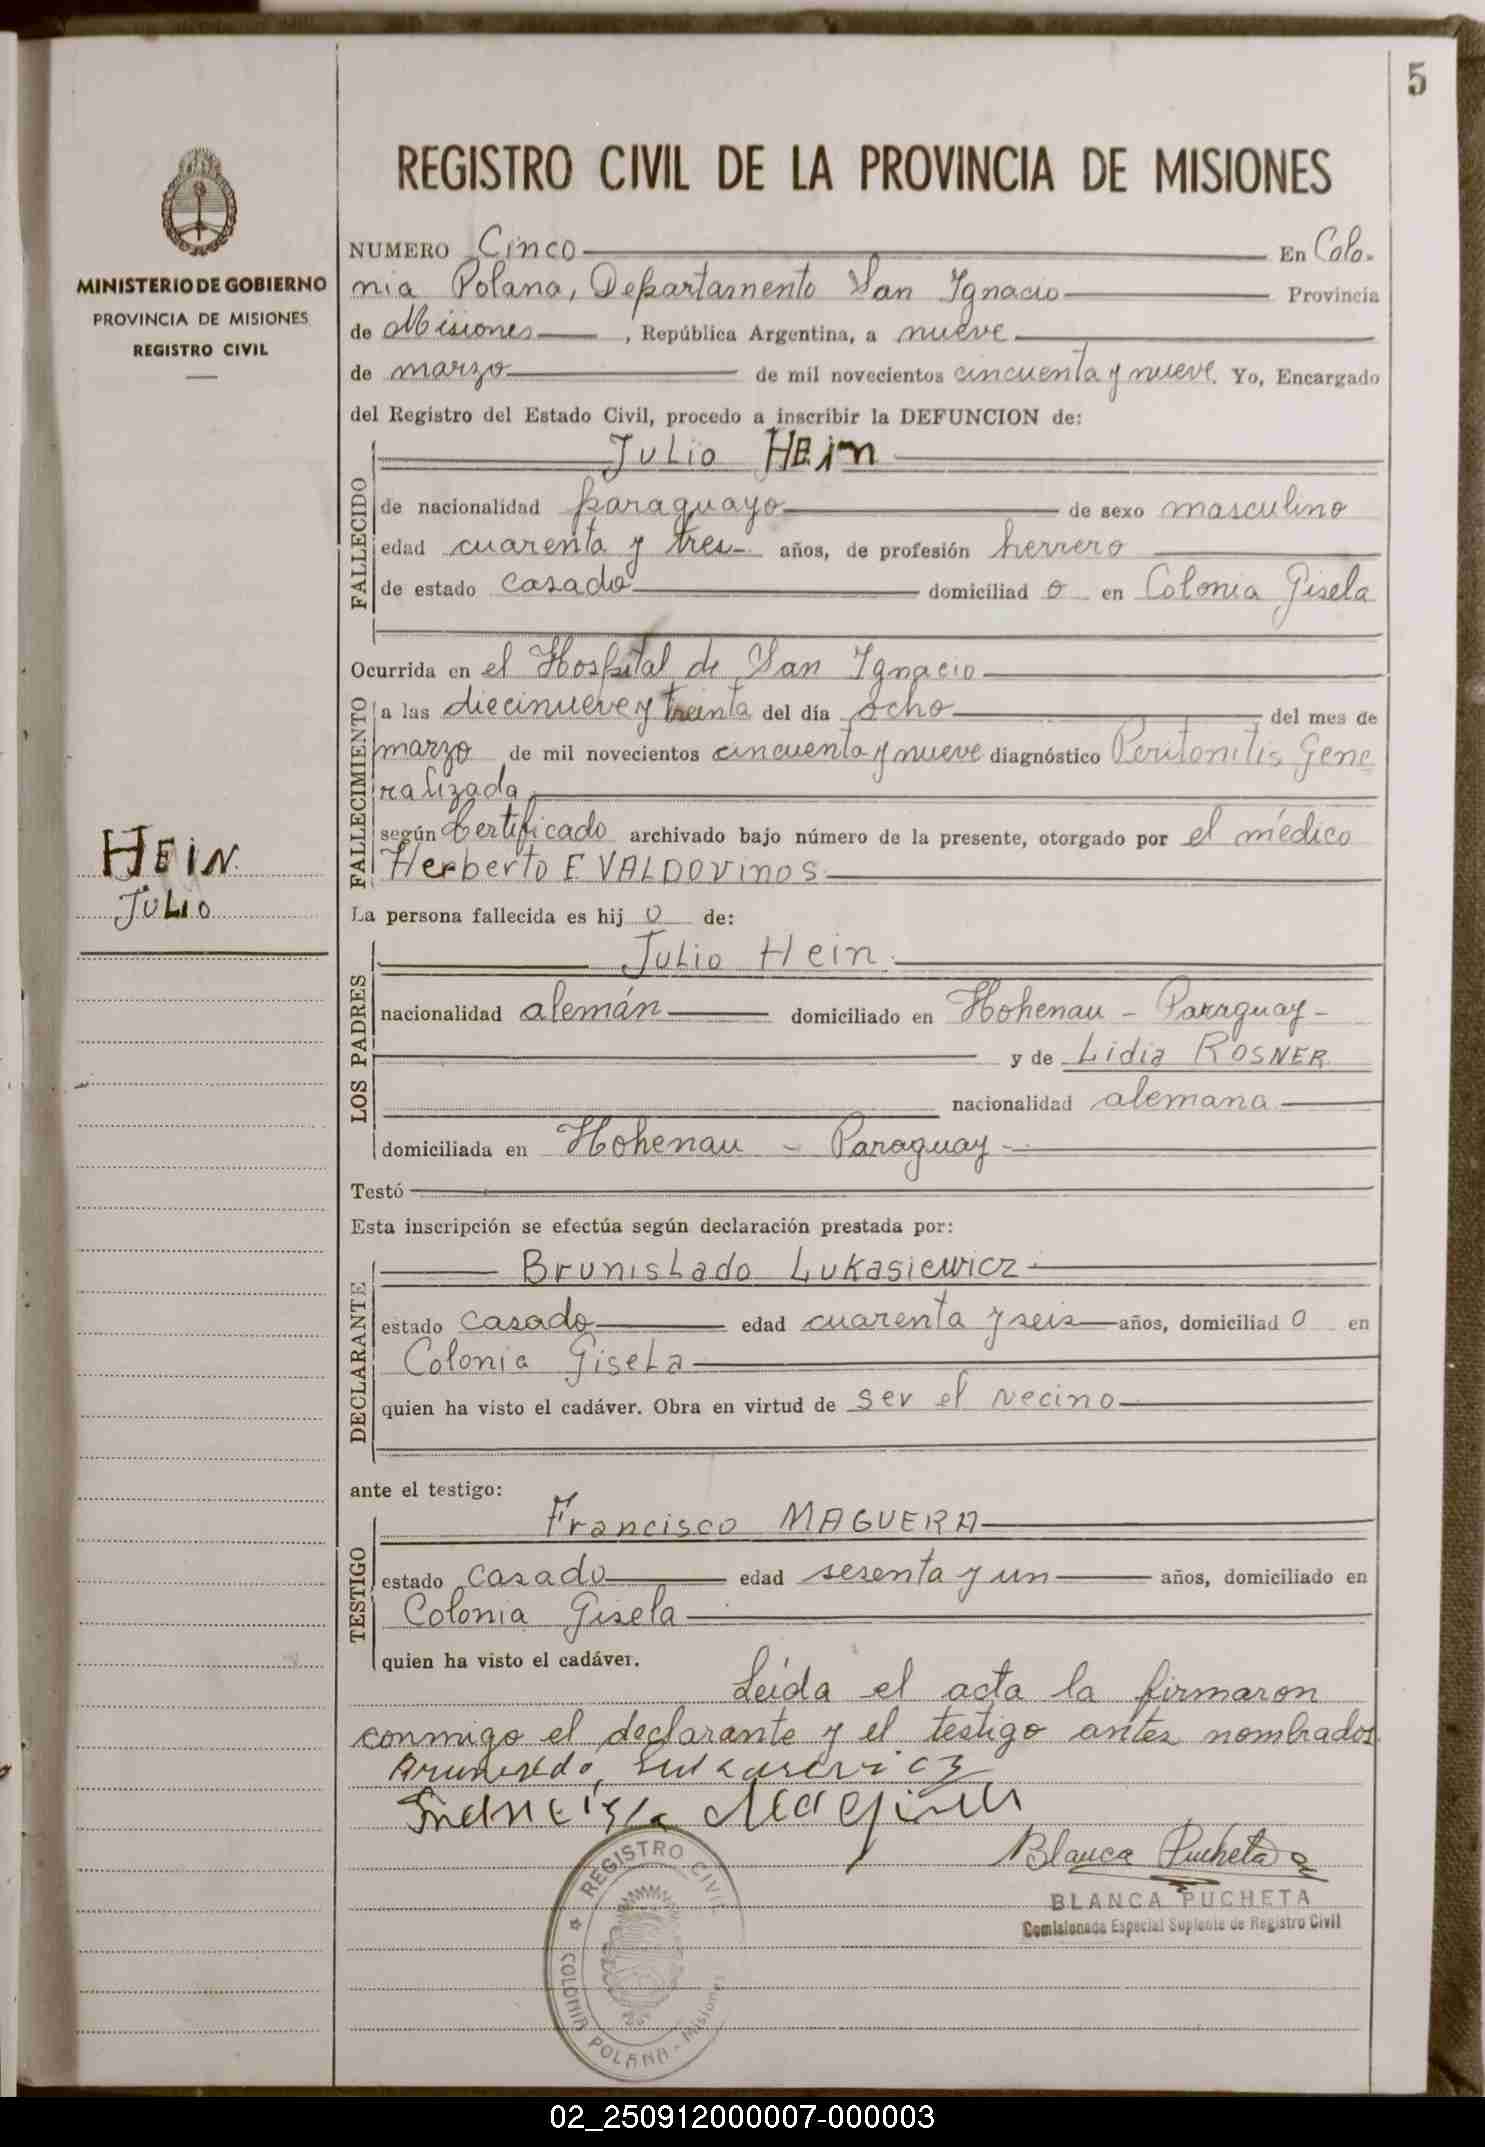 5
REGISTRO CIVIL DE LA PROVINCIA DE MISIONES
MINISTERIO DE GOBIERNO
PROVINCIA DE MISIONES
REGISTRO CIVIL
NUMERO Cinco En Colo-
nia Polana, Departamento San Ignacio Provincia
de Misiones, República Argentina, a nueve
de marzo de mil novecientos cincuenta y nueve. Yo, Encargado
del Registro del Estado Civil, procedo a inscribir la DEFUNCION de:
FALLECIDO
Julio HEin
de nacionalidad paraguayo de sexo masculino
edad cuarenta y tres años, de profesión herrero
de estado casado domiciliad o en Colonia Gisela
Ocurrida en el Hospital de San Ignacio
FALLECIMIENTO
a las diecinueve y treinta del día ocho del mes de
marzo de mil novecientos cincuenta y nueve diagnóstico Peritonitis Gene
ralizada
según Certificado archivado bajo número de la presente, otorgado por el médico
Herberto E VALDOVinos
HEIN.
JULIO
La persona fallecida es hij o de:
LOS PADRES
Julio Hein.
nacionalidad alemán domiciliado en Hohenau - Paraguay -
y de Lidia ROSNER
nacionalidad alemana
domiciliada en Hohenau - Paraguay -
Testó
Esta inscripción se efectúa según declaración prestada por:
DECLARANTE
BrunisLado Lukasiewicz
estado casado edad cuarenta y seis años, domiciliad o en
Colonia Gisela
quien ha visto el cadáver. Obra en virtud de ser el vecino
ante el testigo:
TESTIGO
Francisco MAGUERA
estado casado edad sesenta y un años, domiciliado en
Colonia Gisela
quien ha visto el cadáver.
Leída el acta la firmaron
conmigo el declarante y el testigo antes nombrados.
Blanca Pucheta
BLANCA PUCHETA
Comisionada Especial Suplente de Registro Civil
REGISTRO CIVIL
COLONIA POLANA - Misiones
02_250912000007-000003